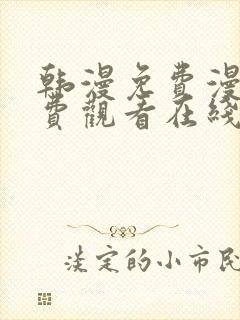 韩漫免費漫
費觀看在线
淡定的小市民